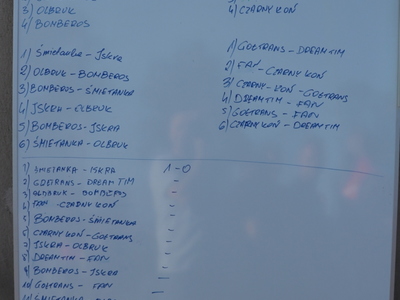 3) OLBRUK
4) BONBEROS
4) CZARNY KOŃ
1) Śmietanka - ISKRA
2) OLBRUK - BOMBEROS
3) BOMBEROS - ŚMIETANKA
4) ISKRA - OLBRUK
5) BOMBEROS - ISKRA
6) ŚMIETANKA - OLBRUK
1) GOLTRANS - DREAMTIM
2) FAN - CZARNY KOŃ
3) CZARNY - KOŃ - GOLTRANS
4) DREAMTIM - FAN
5) GOLTRANS - FAN
6) CZARNY KOŃ - DREAMTIM
1) ŚMIETANKA - ISKRA 1-0
2) GOLTRANS - DREAM TIM -
3) OLBRUK - BOMBEROS -
4) FAN - CZARNY KOŃ -
BOMBEROS - ŚMIETANKA -
5) CZARNY KOŃ - GOLTRANS -
7) ISKRA - OLBRUK -
8) DREAMTIM - FAN -
9) BOMBEROS - ISKRA -
10) GOLTRANS - FAN -
ŚMIETANKA